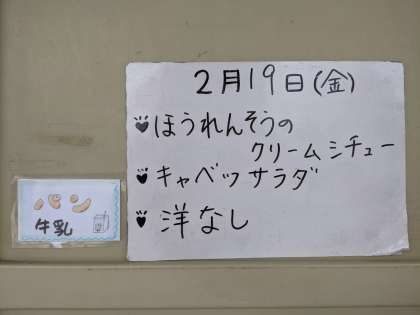 2月19日(金)
ほうれんそうの
クリームシチュー
キャベツサラダ
洋なし
パン
牛乳